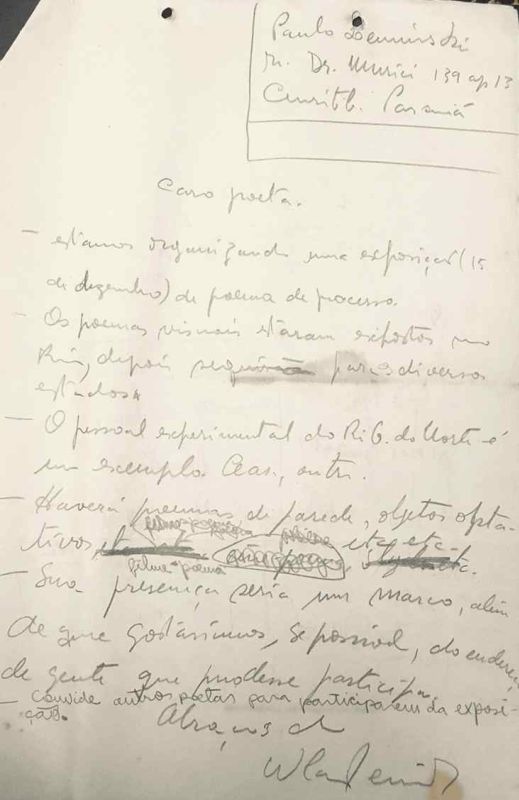 Paulo Leminski
R. Dr. Murici 139 ap 13
Curitb. Paraná
Caro poeta.
— estamos organizando uma exposição (15
de dezembro) de poema de processo.
— Os poemas visuais estaram expostos no
Rio, depois para diversos
estados.
— O pessoal experimental do Ri G. do Norte é
um exemplo. Cear., outr.
— Haverá poemas de parede, objetos opta-
tivos, etc etc.
filme-poema
— Sua presença seria um marco, além
de que gostáriamos, se possível, do endereço
de gente que pudesse participar.
— Convide outros poetas para participarem da exposi-
ção.
Abraços do
Wlademir